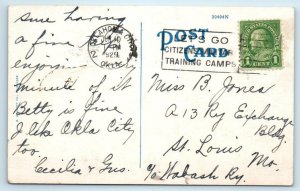 sure having
a fine
enjoying
minute of it
Betty is fine
I like Okla City
too
Cecilia & Gus.
OKLAHOMA CITY
OKLA.
30404N
POST
CARD
LET'S GO
CITIZENS
TRAINING CAMPS
1 CENT 1
Miss B. Jones
A 13 Ry Exchange
Bldg
St. Louis Mo.
c/o Wabash Ry